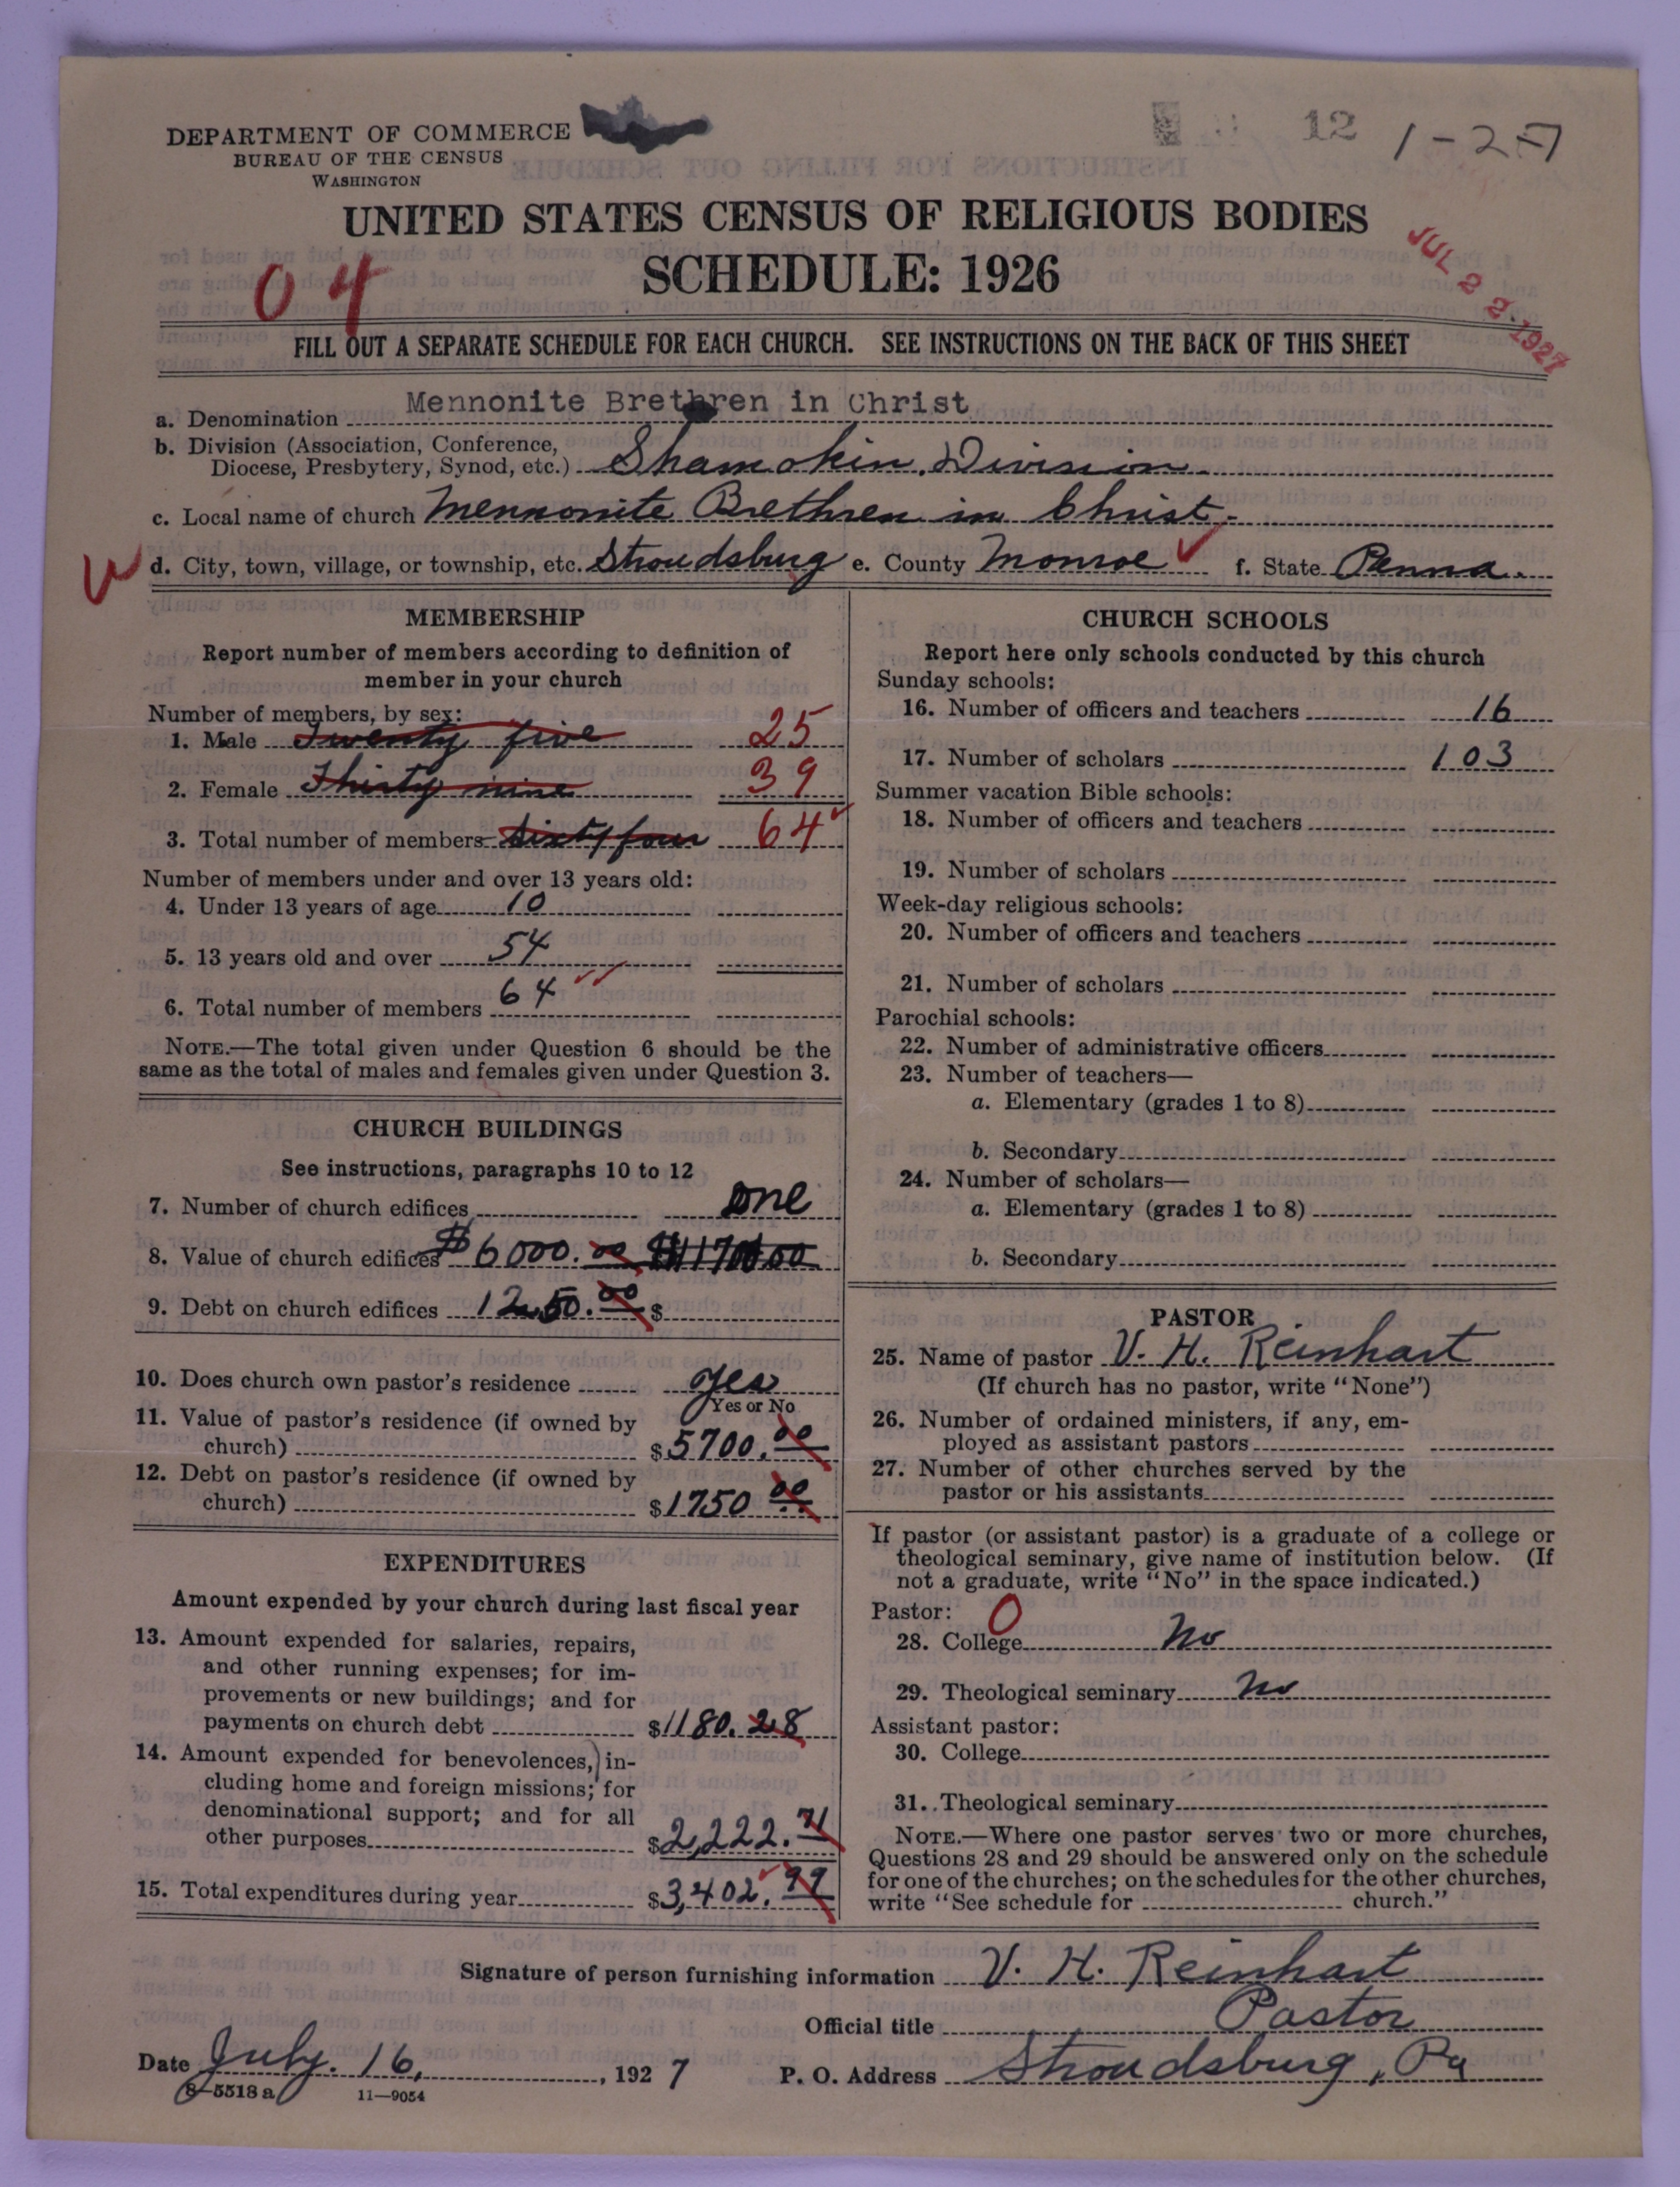 DEPARTMENT OF COMMERCE
BUREAU OF THE CENSUS
WASHINGTON
12 1-27
UNITED STATES CENSUS OF RELIGIOUS BODIES
SCHEDULE: 1926
04
JUL 22 1927
FILL OUT A SEPARATE SCHEDULE FOR EACH CHURCH. SEE INSTRUCTIONS ON THE BACK OF THIS SHEET
a. Denomination Mennonite Brethren in Christ
b. Division (Association, Conference,
Diocese, Presbytery, Synod, etc.) Shamokin Division
c. Local name of church Mennonite Brethren in Christ.
W d. City, town, village, or township, etc. Stroudsburg e. County Monroe f. State Penna.
MEMBERSHIP
Report number of members according to definition of
member in your church
Number of members, by sex:
1. Male Twenty five 25
2. Female Thirty nine 39
3. Total number of members Sixty four 64
Number of members under and over 13 years old:
4. Under 13 years of age 10
5. 13 years old and over 54
6. Total number of members 64
NOTE.—The total given under Question 6 should be the
same as the total of males and females given under Question 3.
CHURCH BUILDINGS
See instructions, paragraphs 10 to 12
7. Number of church edifices One
8. Value of church edifices $6000.00
9. Debt on church edifices 1250.00 $
10. Does church own pastor's residence yes
Yes or No
11. Value of pastor's residence (if owned by
church) $5700.00
12. Debt on pastor's residence (if owned by
church) $1750 00
EXPENDITURES
Amount expended by your church during last fiscal year
13. Amount expended for salaries, repairs,
and other running expenses; for im-
provements or new buildings; and for
payments on church debt $1180.28
14. Amount expended for benevolences, in-
cluding home and foreign missions; for
denominational support; and for all
other purposes $2,222.71
15. Total expenditures during year $3,402.99
CHURCH SCHOOLS
Report here only schools conducted by this church
Sunday schools:
16. Number of officers and teachers 16
17. Number of scholars 103
Summer vacation Bible schools:
18. Number of officers and teachers
19. Number of scholars
Week-day religious schools:
20. Number of officers and teachers
21. Number of scholars
Parochial schools:
22. Number of administrative officers
23. Number of teachers—
a. Elementary (grades 1 to 8)
b. Secondary
24. Number of scholars—
a. Elementary (grades 1 to 8)
b. Secondary
PASTOR
25. Name of pastor V. H. Reinhart
(If church has no pastor, write "None")
26. Number of ordained ministers, if any, em-
ployed as assistant pastors
27. Number of other churches served by the
pastor or his assistants
If pastor (or assistant pastor) is a graduate of a college or
theological seminary, give name of institution below. (If
not a graduate, write "No" in the space indicated.)
Pastor: 0
28. College No
29. Theological seminary No
Assistant pastor:
30. College
31. Theological seminary
NOTE.—Where one pastor serves two or more churches,
Questions 28 and 29 should be answered only on the schedule
for one of the churches; on the schedules for the other churches,
write "See schedule for church."
Signature of person furnishing information V. H. Reinhart
Official title Pastor
Date July. 16, 1927 P. O. Address Stroudsburg, Pa
8-5518 a 11—9054